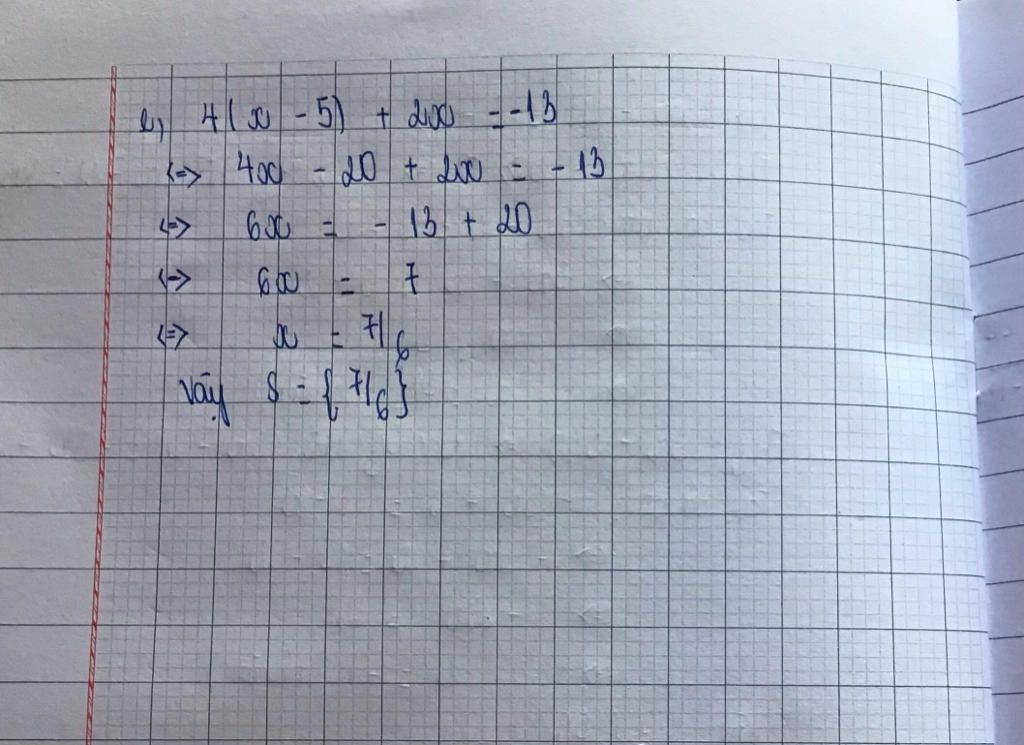 e, 4(x - 5) + 2x = -13
<=> 4x - 20 + 2x = - 13
<=> 6x = - 13 + 20
<=> 6x = 7
<=> x = 7/6
Vậy S = {7/6}